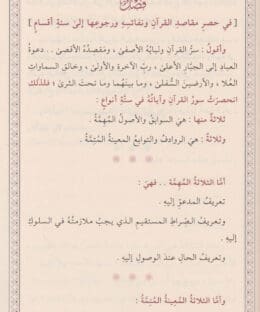 فصل
[ في حصر مقاصد القرآن ونفائسه ورجوعها إلىٰ ستة أقسام ]
وأقولُ : سرُّ القرآنِ ولبابُهُ الأصفىٰ ، ومقصدُهُ الأقصىٰ .. دعوةُ
العبادِ إلى الجبّارِ الأعلىٰ ، ربِّ الآخرةِ والأولىٰ ، وخالقِ السماواتِ
العُلا ، والأرضينَ السُّفلىٰ ، وما بينَهُما وما تحتَ الثرىٰ ؛ فلذلكَ
انحصرَتْ سورُ القرآنِ وآياتُهُ في ستّةِ أنواعٍ :
ثلاثةٌ منها : هيَ السوابقُ والأصولُ المُهِمَّةُ .
وثلاثةٌ : هيَ الروادفُ والتوابعُ المعينةُ المُتِمَّةُ .
أمّا الثلاثةُ المُهِمَّةُ .. فهيَ :
تعريفُ المدعوِّ إليهِ .
وتعريفُ الصِّراطِ المستقيمِ الذي يجبُ ملازمتُهُ في السلوكِ
إليهِ .
وتعريفُ الحالِ عندَ الوصولِ إليهِ .
وأمّا الثلاثةُ المُعِينةُ المُتِمَّةُ :